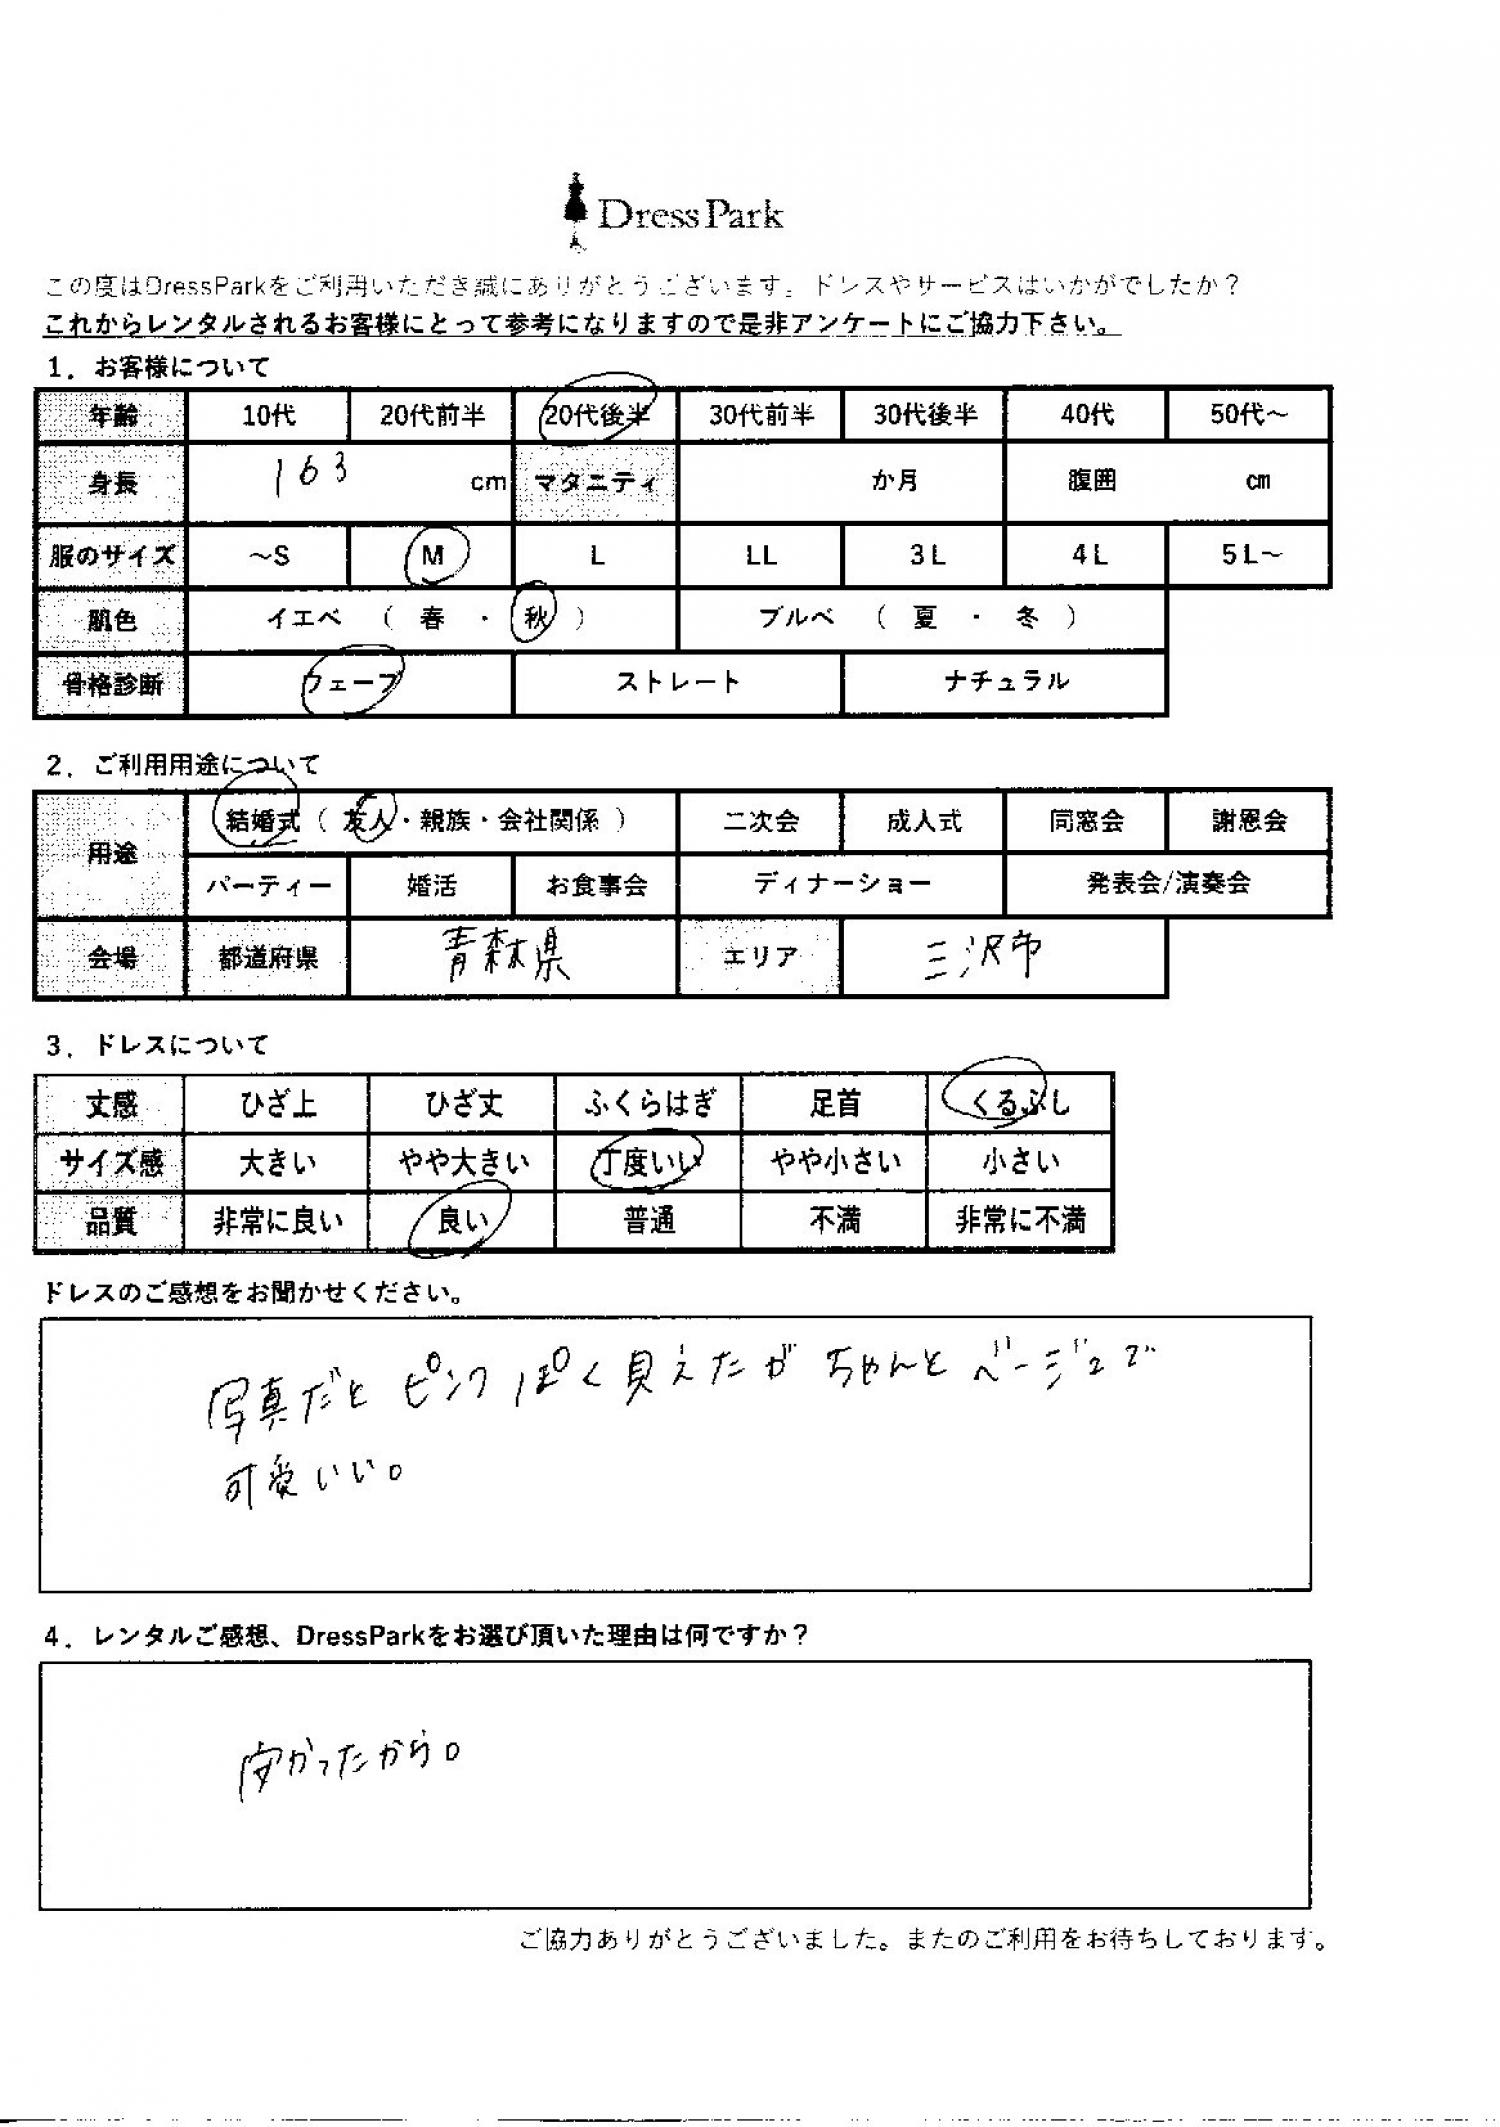 DressPark
この度はDressParkをご利用いただき誠にありがとうございます。ドレスやサービスはいかがでしたか？
これからレンタルされるお客様にとって参考になりますので是非アンケートにご協力下さい。
1．お客様について
年齢 10代 20代前半 20代後半 30代前半 30代後半 40代 50代～
身長 163 cm マタニティ か月 腹囲 cm
服のサイズ ～S M L LL 3L 4L 5L～
肌色 イエベ （ 春 ・ 秋 ） ブルベ （ 夏 ・ 冬 ）
骨格診断 ウェーブ ストレート ナチュラル
2．ご利用用途について
用途 結婚式（ 友人・親族・会社関係 ） 二次会 成人式 同窓会 謝恩会
パーティー 婚活 お食事会 ディナーショー 発表会/演奏会
会場 都道府県 青森県 エリア 三沢市
3．ドレスについて
丈感 ひざ上 ひざ丈 ふくらはぎ 足首 くるぶし
サイズ感 大きい やや大きい 丁度いい やや小さい 小さい
品質 非常に良い 良い 普通 不満 非常に不満
ドレスのご感想をお聞かせください。
写真だと ピンクぽく見えたが ちゃんと ベージュで
可愛いい。
4．レンタルご感想、DressParkをお選び頂いた理由は何ですか？
安かったから。
ご協力ありがとうございました。またのご利用をお待ちしております。